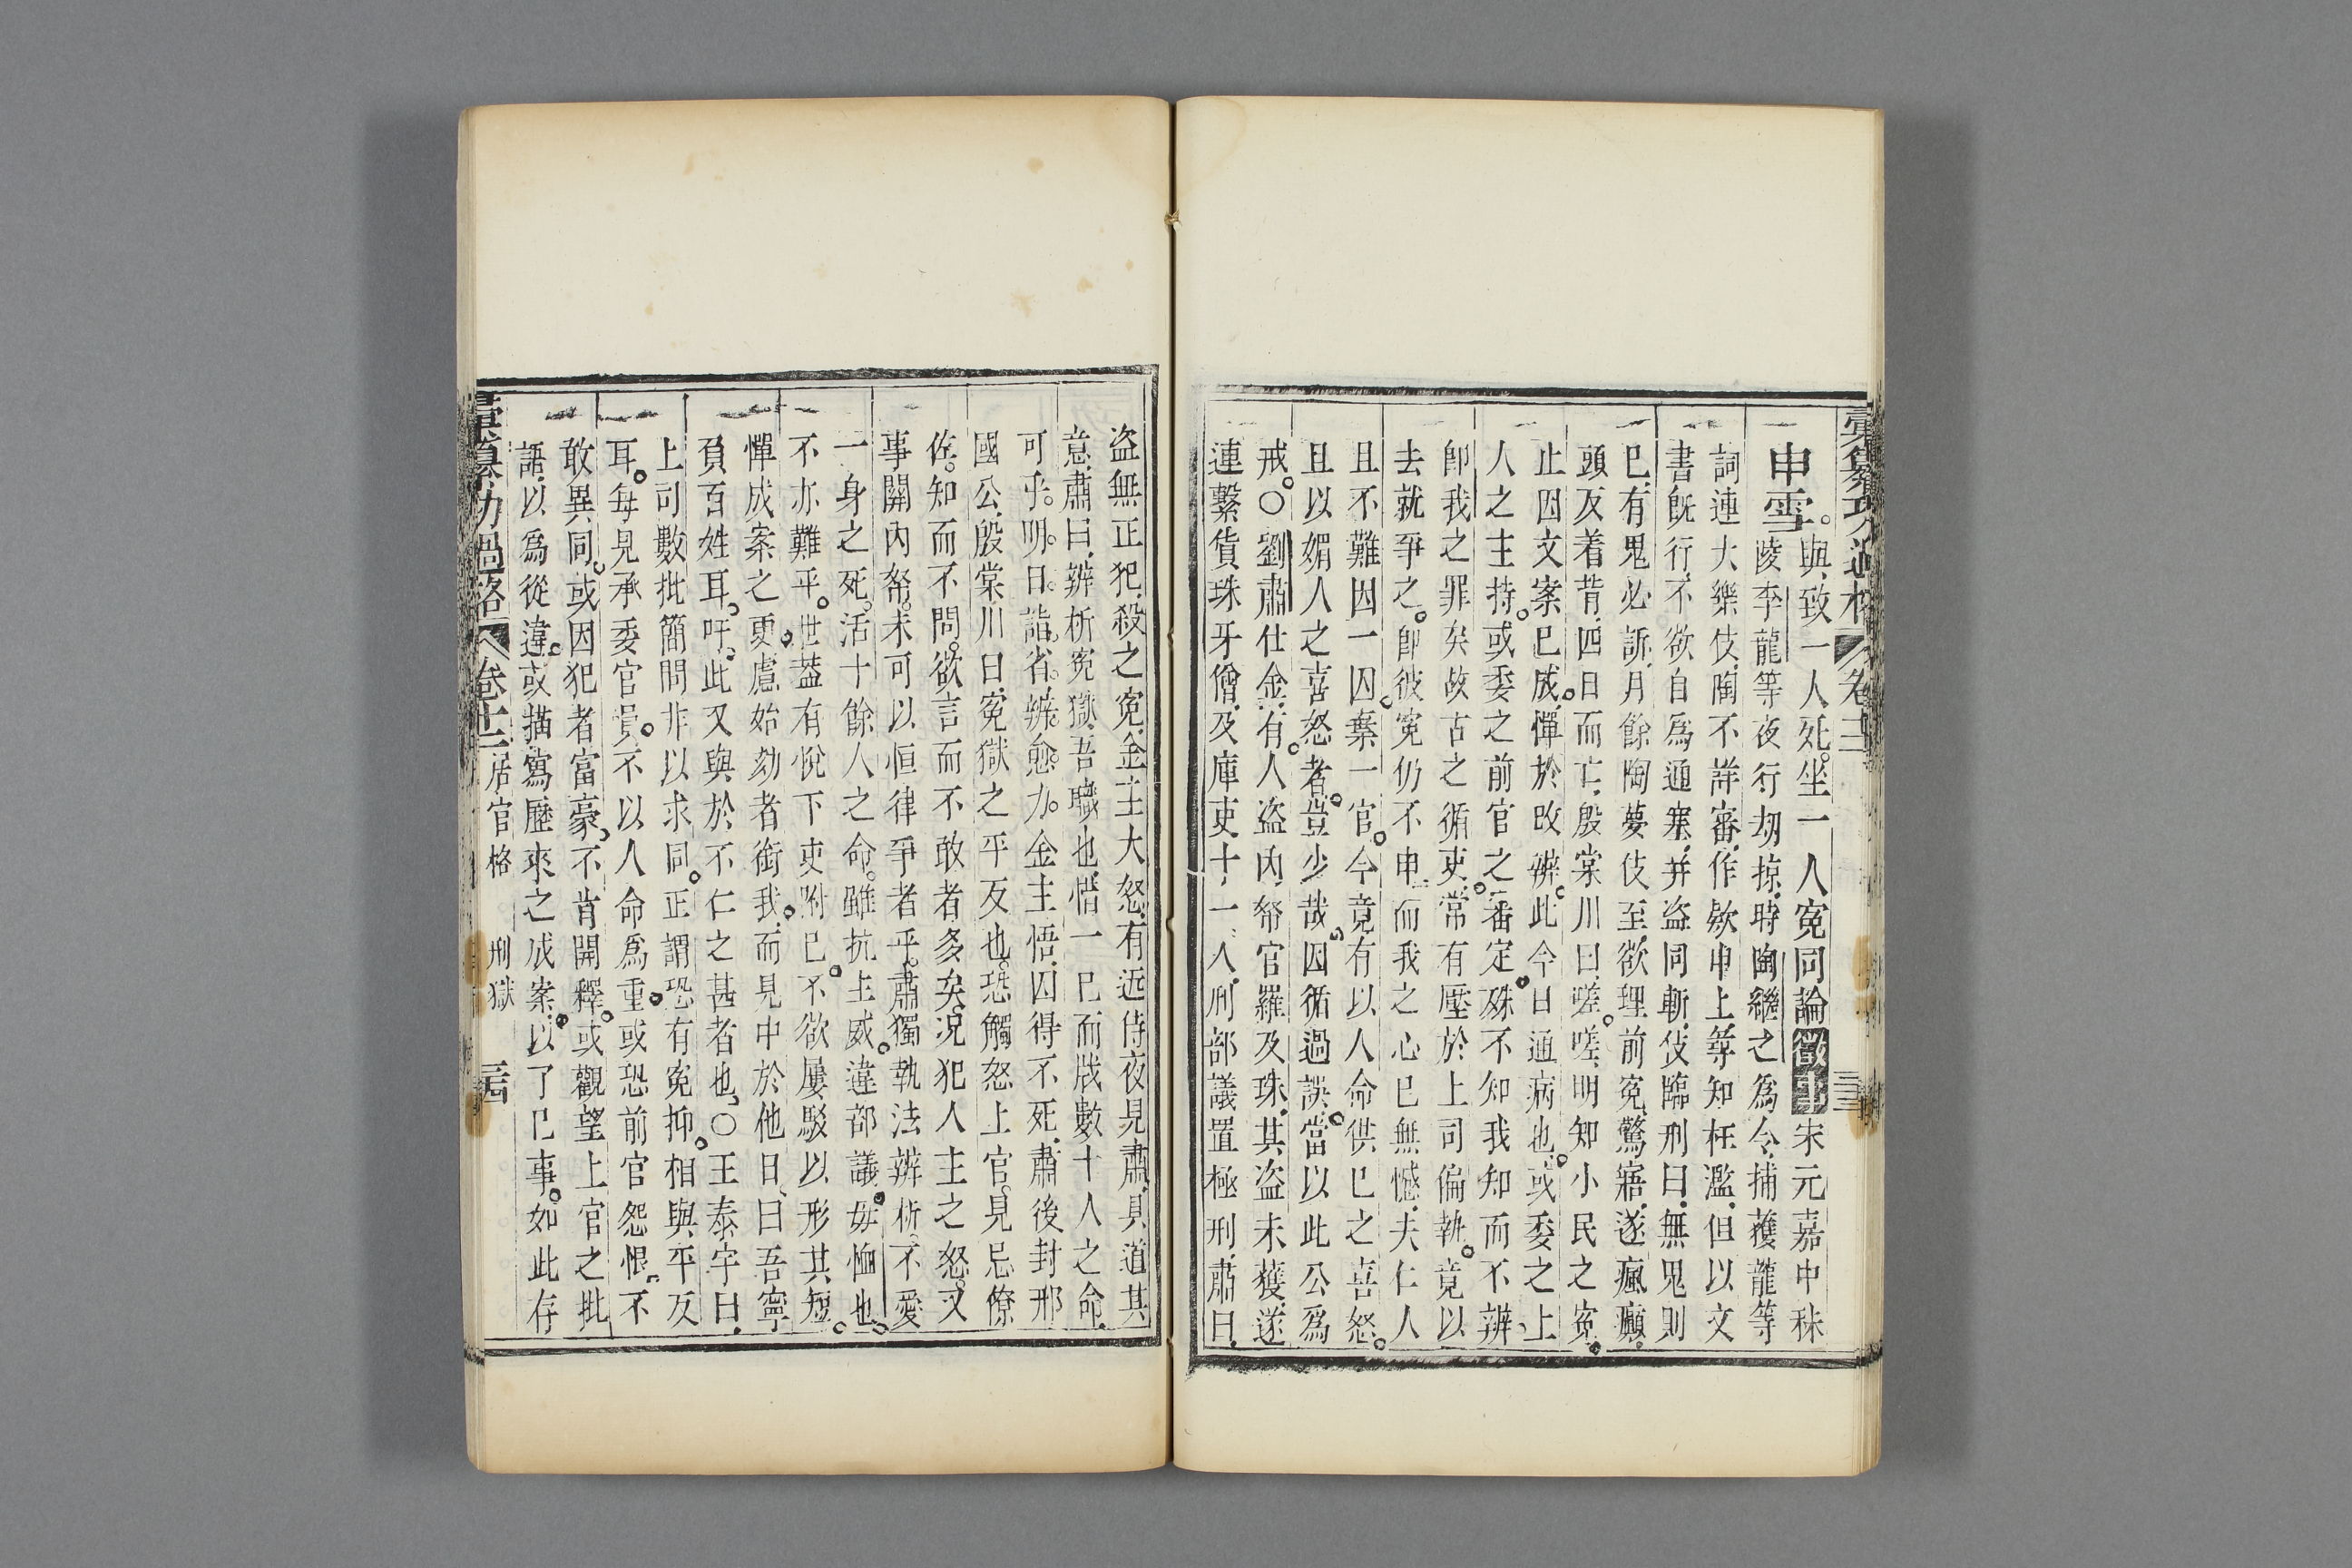 彙纂功過格 卷十二
申雪。與致一人死。坐一人寃同論 徵事 宋元嘉中秣
陵李龍等夜行刼掠。時陶繼之爲令。捕獲龍等
詞連大樂伎。陶不詳審。作欵申上。等知枉濫。但以文
書旣行。不欲自爲通塞。并盗同斬。伎臨刑曰。無鬼則
巳。有鬼必訴。月餘陶夢伎至。欲理前寃。驚寤。遂瘋癲。
頭反着背。四日而亡。殷棠川曰。嗟嗟。明知小民之寃。
止因文案已成。憚於改辨。此今日通病也。或委之上
人之主持。或委之前官之審定。殊不知我知而不辨、
卽我之罪矣。故古之循吏。常有壓於上司偏執。竟以
去就爭之。卽彼寃仍不申。而我之心已無憾。夫仁人
且不難因一囚。棄一官。今竟有以人命供巳之喜怒。
且以媚人之喜怒者。豈少哉。因循過誤。當以此公爲
戒。〇劉肅仕金。有人盗內帑官羅及珠。其盗未獲。遂
連繫貨珠牙儈。及庫吏十一人。刑部議置極刑。肅曰。
盗無正犯。殺之寃。金主大怒。有近侍夜見肅。具道其
意。肅曰。辨析寃獄。吾職也。惜一巳而戕數十人之命。
可乎。明日。詣省。辨愈力。金主悟。囚得不死。肅後封邢
國公。殷棠川曰。寃獄之平反也。恐觸怒上官。見忌僚
佐。知而不問。欲言而不敢者多矣。况犯人主之怒。又
事關內帑。未可以恒律爭者乎。肅獨執法辨析。不愛
一身之死。活十餘人之命。雖抗主威。違部議。毋恤也。
不亦難乎。世蓋有悅下吏附巳。不欲屢駁以形其短。
憚成案之更。慮始劾者銜我。而見中於他日。曰吾寧
負百姓耳。吁。此又與於不仁之甚者也。〇王泰宇曰。
上司數批簡問。非以求同。正謂恐有寃抑。相與平反
耳。每見承委官員。不以人命爲重。或恐前官怨恨。不
敢異同。或因犯者富豪。不肯開釋。或觀望上官之批
語。以爲從違。或描寫歷來之成案。以了巳事。如此存
彙纂功過格 卷十二 居官格 刑獄 三四